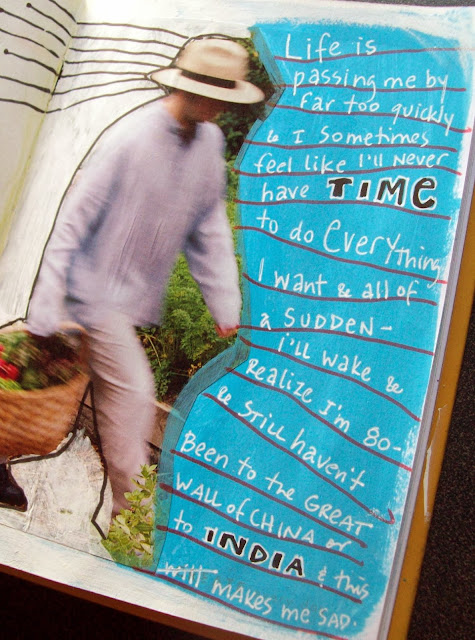 Life is
passing me by
far too quickly
& I Sometimes
feel like I'll Never
have TIME
to do EVERYthing
I want & all of
a SUDDEN-
I'll wake &
Realize I'm 80-
& STill haven't
Been to the GREAT
WALL of CHINA or
to INDIA & this
will MAKES me SAD.